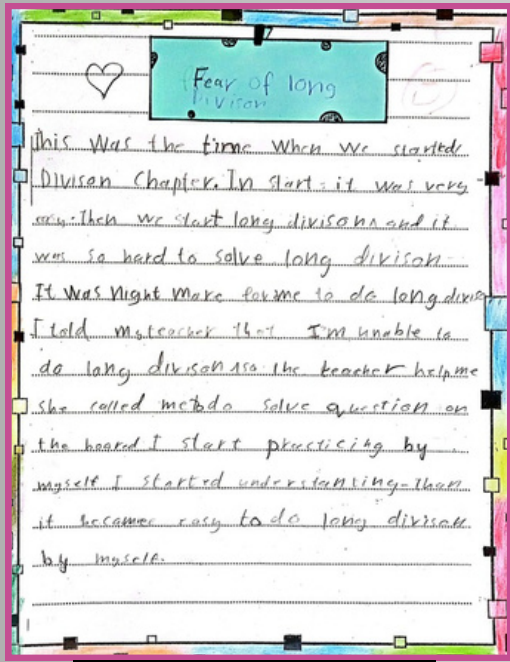 Fear of long
Divison
This was the time when we started
Divison Chapter. In start it was very
easy. Then we start long divison and it
was so hard to solve long divison
It was night mare for me to do long divison
I told my teacher that I'm unable to
do long divison so the teacher help me
she called me to do solve question on
the boared I start practicing by
myself I started understanting. Than
it becamee easy to do long divison
by myself.